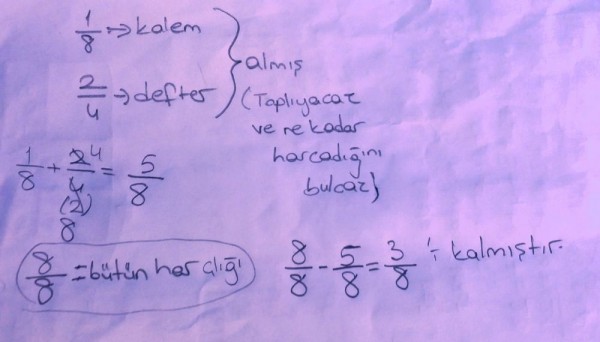 1/8 → kalem
2/4 → defter
} almış
(Toplıyacaz
ve ne kadar
harcadığını
bulcaz)
1/8 + 2/4 = 5/8
4
(2)
8
8/8 = bütün harçlığı
8/8 - 5/8 = 3/8 'i kalmıştır.